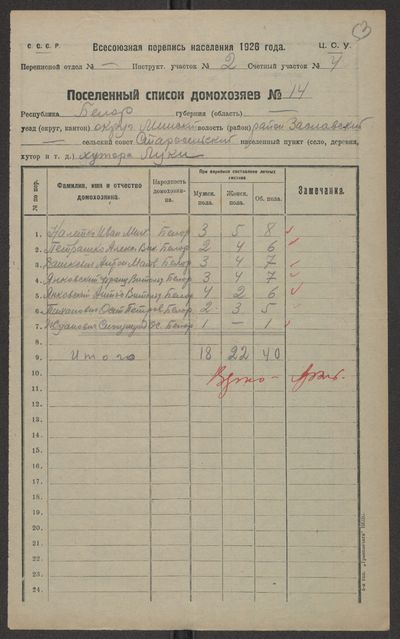 С. С. С. Р.
Всесоюзная перепись населения 1926 года.
Ц. С. У.
3
Переписной отдел № — Инструкт. участок № 2 Счетный участок № 4
Поселенный список домохозяев № 14
Республика Белор губерния (область) —
уезд (округ, кантон) округ Минский волость (район) район Заславский
— сельский совет Старосельский населенный пункт (село, деревня,
хутор и т. д.) хутора Луки
№ по пор.
Фамилия, имя и отчество домохозяина.
Народность домохозяина.
При переписи составлено личных листков
Мужск. пола.
Женск. пола.
Об. пола.
Замечания.
1. Иван Мих. Белор 3 5 8
2. Петрашко Алекс. Вик. Белор 2 4 6
3. Антон Белор 3 4 7
4. Янковский Франц Белор 3 4 7
5. Янковский Антон Белор 4 2 6
6. Петров Белор 2 3 5
7. Белор 1 — 1
8.
9. Итого 18 22 40
10.
11.
12.
13.
14.
15.
16.
17.
18.
19.
20.
21.
22.
23.
24.